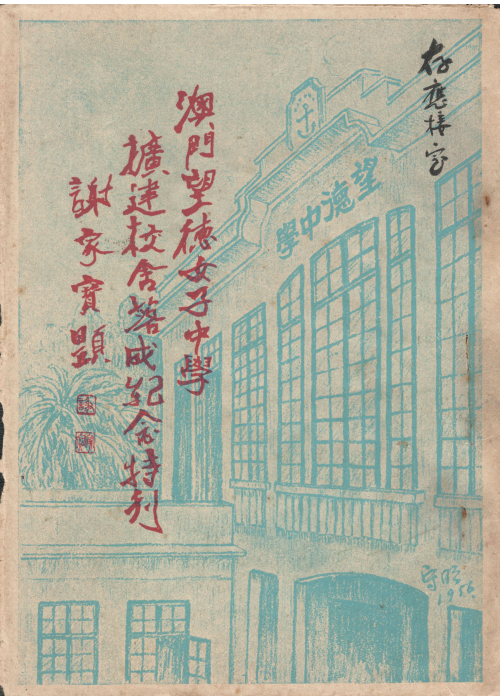 存應接室
澳門望德女子中學
擴建校舍落成紀念特刋
謝家寶題
望德中學
1956